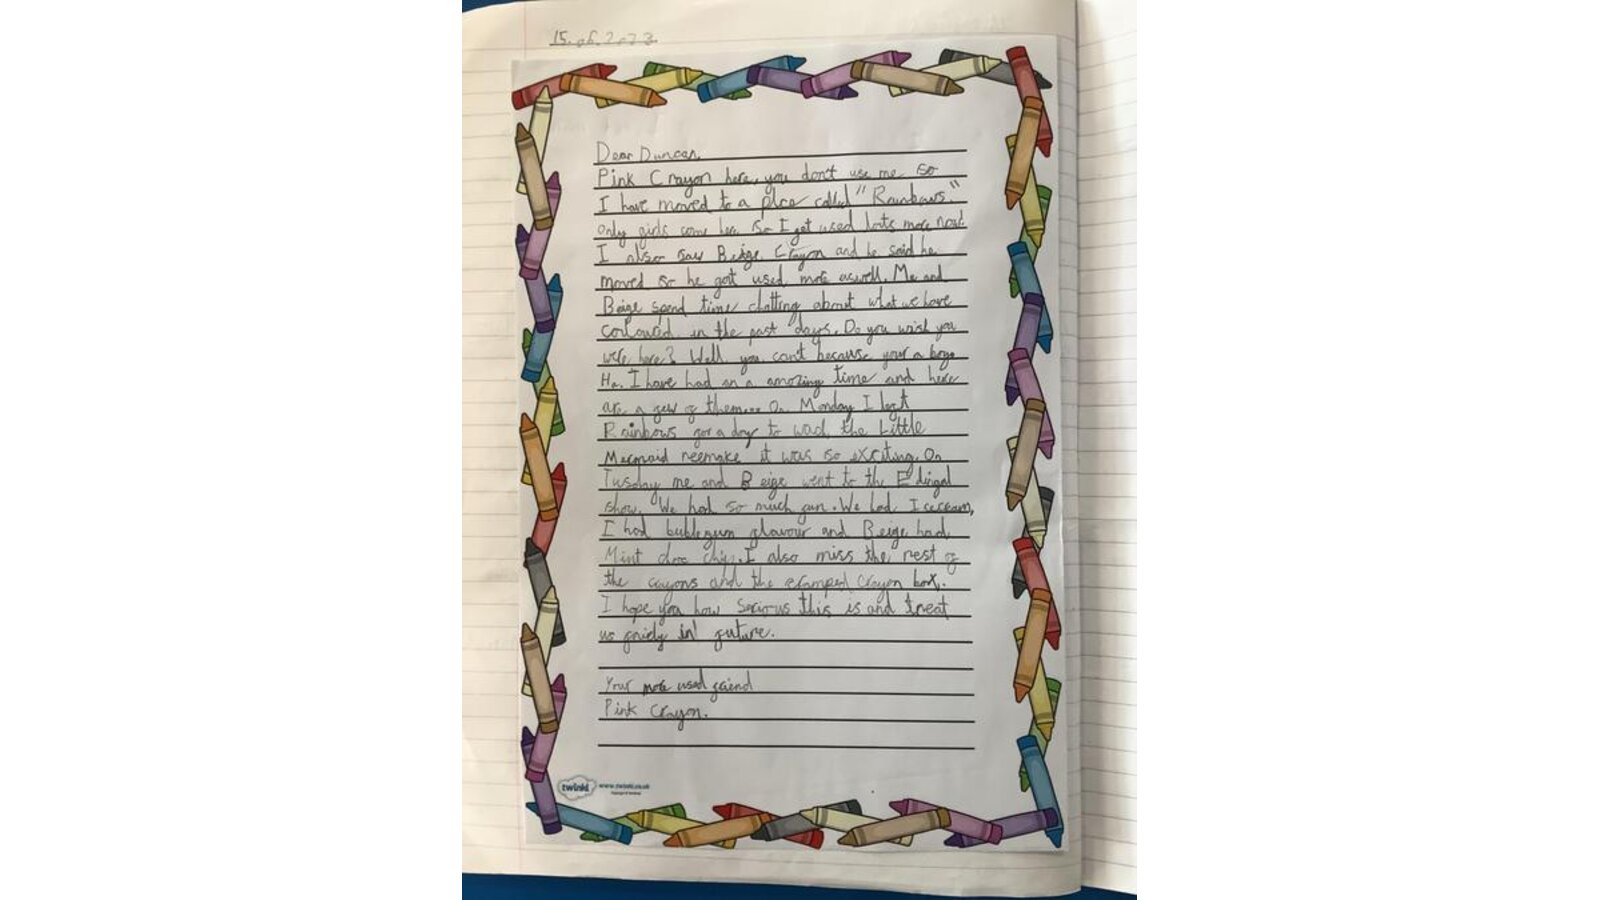 15.06.2023
Dear Duncan,
Pink Crayon here, you don't use me so
I have moved to a place called "Rainbows".
Only girls come here so I get used lots more now!
I also saw Beige Crayon and he said he
moved so he got used more aswell. Me and
Beige spend time chatting about what we have
coloured in the past days. Do you wish you
were here? Well you can't because your a boy
Ha. I have had an a amazing time and here
are a few of them... On Monday I left
Rainbows for a day to the Little
Mermaid reemake it was so exciting. On
Tusday me and Beige went to the Edingal
show. We had so much fun. We had Icecream,
I had bublegum flavour and Beige had
Mint choc chip. I also miss the rest of
the crayons and the cramped Crayon box.
I hope you how serious this is and treat
us in future.
Your more used friend
Pink Crayon.
twinkl
www.twinkl.co.uk